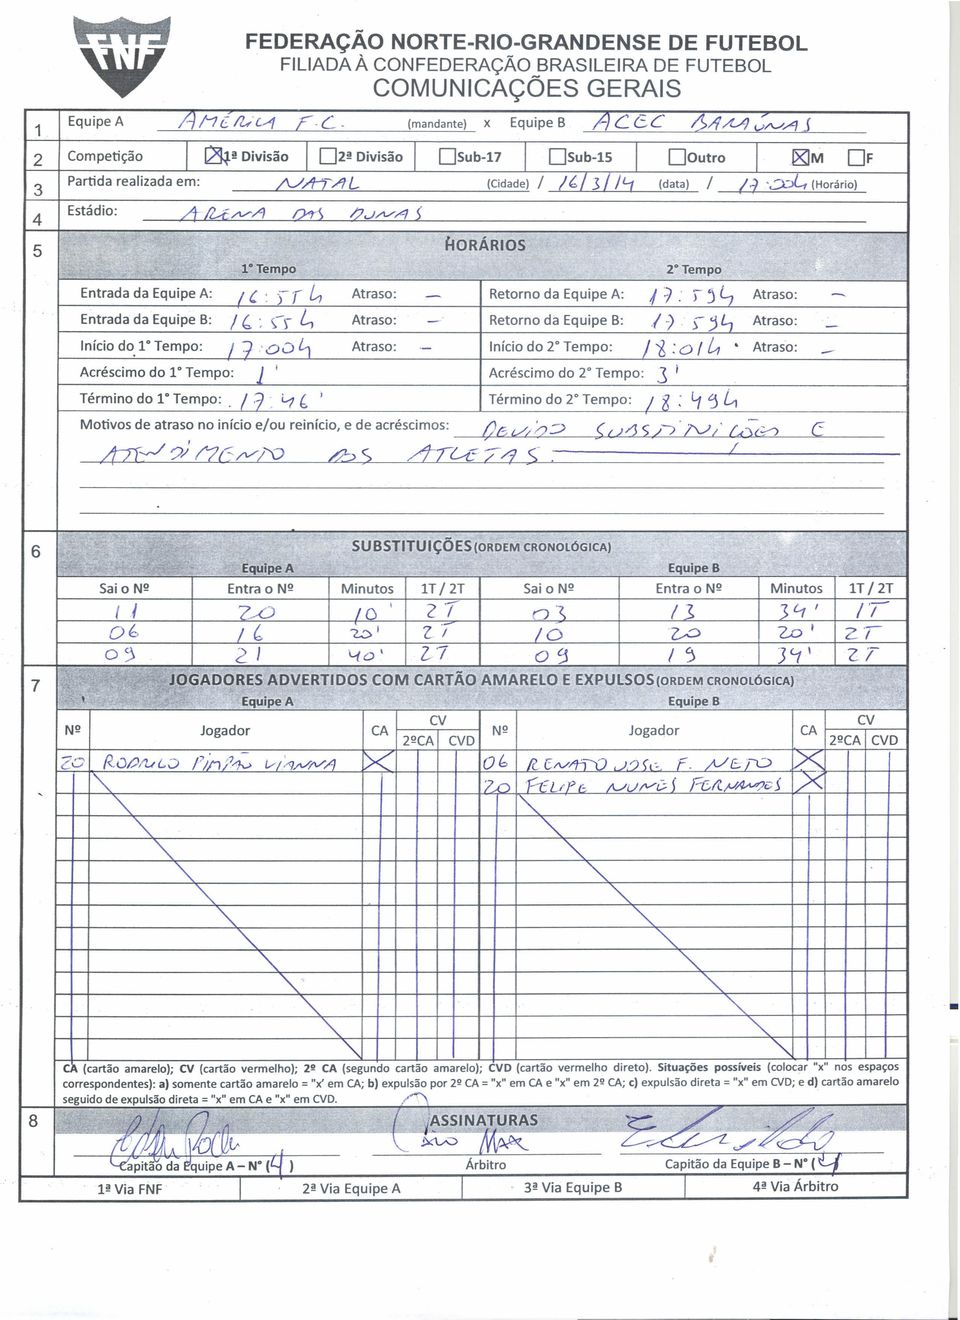 FNF
FEDERAÇÃO NORTE-RIO-GRANDENSE DE FUTEBOL
FILIADA À CONFEDERAÇÃO BRASILEIRA DE FUTEBOL
COMUNICAÇÕES GERAIS
1 Equipe A AMÉRICA F.C. (mandante) x Equipe B ACEC BARAÚNAS
2 Competição 1ª Divisão 2ª Divisão Sub-17 Sub-15 Outro M F
3 Partida realizada em: NATAL (Cidade) / 16/3/14 (data) / 17:00h (Horário)
4 Estádio: ARENA DAS DUNAS
5 HORÁRIOS
1º Tempo 2º Tempo
Entrada da Equipe A: 16:55h Atraso: - Retorno da Equipe A: 17:59h Atraso: -
Entrada da Equipe B: 16:55h Atraso: - Retorno da Equipe B: 17:59h Atraso: -
Início do 1º Tempo: 17:00h Atraso: - Início do 2º Tempo: 18:01h Atraso: -
Acréscimo do 1º Tempo: 1' Acréscimo do 2º Tempo: 3'
Término do 1º Tempo: 17:46' Término do 2º Tempo: 18:49h
Motivos de atraso no início e/ou reinício, e de acréscimos: DEVIDO SUBSTITUIÇÕES E
ATENDIMENTO AOS ATLETAS.
6 SUBSTITUIÇÕES (ORDEM CRONOLÓGICA)
Equipe A Equipe B
Sai o Nº Entra o Nº Minutos 1T / 2T Sai o Nº Entra o Nº Minutos 1T / 2T
11 20 10' 2T 03 13 34' 1T
06 16 20' 2T 10 20 20' 2T
09 21 40' 2T 09 19 34' 2T
7 JOGADORES ADVERTIDOS COM CARTÃO AMARELO E EXPULSOS (ORDEM CRONOLÓGICA)
Equipe A Equipe B
Nº Jogador CA CV Nº Jogador CA CV
2ºCA CVD 2ºCA CVD
20 RODRIGO PIMPÃO VIANNA X 06 RENATO JOSE F. NETO X
20 FELIPE NUNES FERNANDES X
CA (cartão amarelo); CV (cartão vermelho); 2º CA (segundo cartão amarelo); CVD (cartão vermelho direto). Situações possíveis (colocar "x" nos espaços
correspondentes): a) somente cartão amarelo = "x' em CA; b) expulsão por 2º CA = "x" em CA e "x" em 2º CA; c) expulsão direta = "x" em CVD; e d) cartão amarelo
seguido de expulsão direta = "x" em CA e "x" em CVD.
8 ASSINATURAS
Capitão da Equipe A – N° (4) Árbitro Capitão da Equipe B – N° (4)
1ª Via FNF 2ª Via Equipe A 3ª Via Equipe B 4ª Via Árbitro